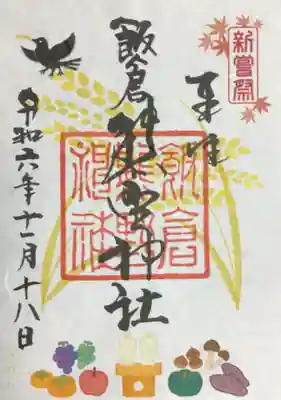 新嘗祭
奉拝
飯倉熊野神社
飯倉
熊野
神社
令和六年十一月十八日